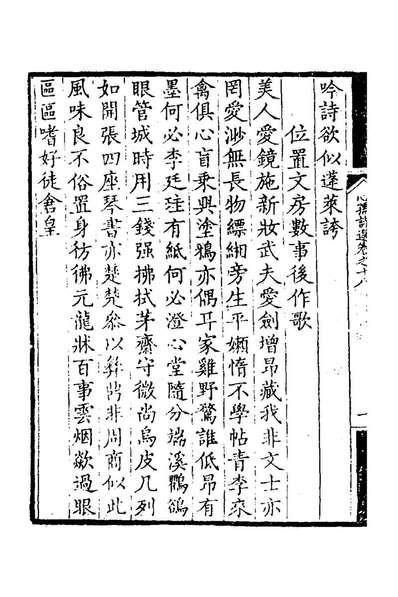 吟詩欲似蓬萊誇
位置文房數事後作歌
美人愛鏡施新妝武夫愛劍增昂藏我非文士亦
罔愛渺無長物縹緗旁生平嬾惰不學帖青李來
禽俱心盲乘興塗鴉亦偶耳家雞野鶩誰低昂有
墨何必李廷珪有紙何必澄心堂隨分端溪鸜鵒
眼管城時用三錢强拂拭茅齋守微尚烏皮几列
如開張四座琴書亦楚楚參以彝鼎非周商似此
風味良不俗置身彷彿元龍牀百事雲烟欻過眼
區區嗜好徒倉皇